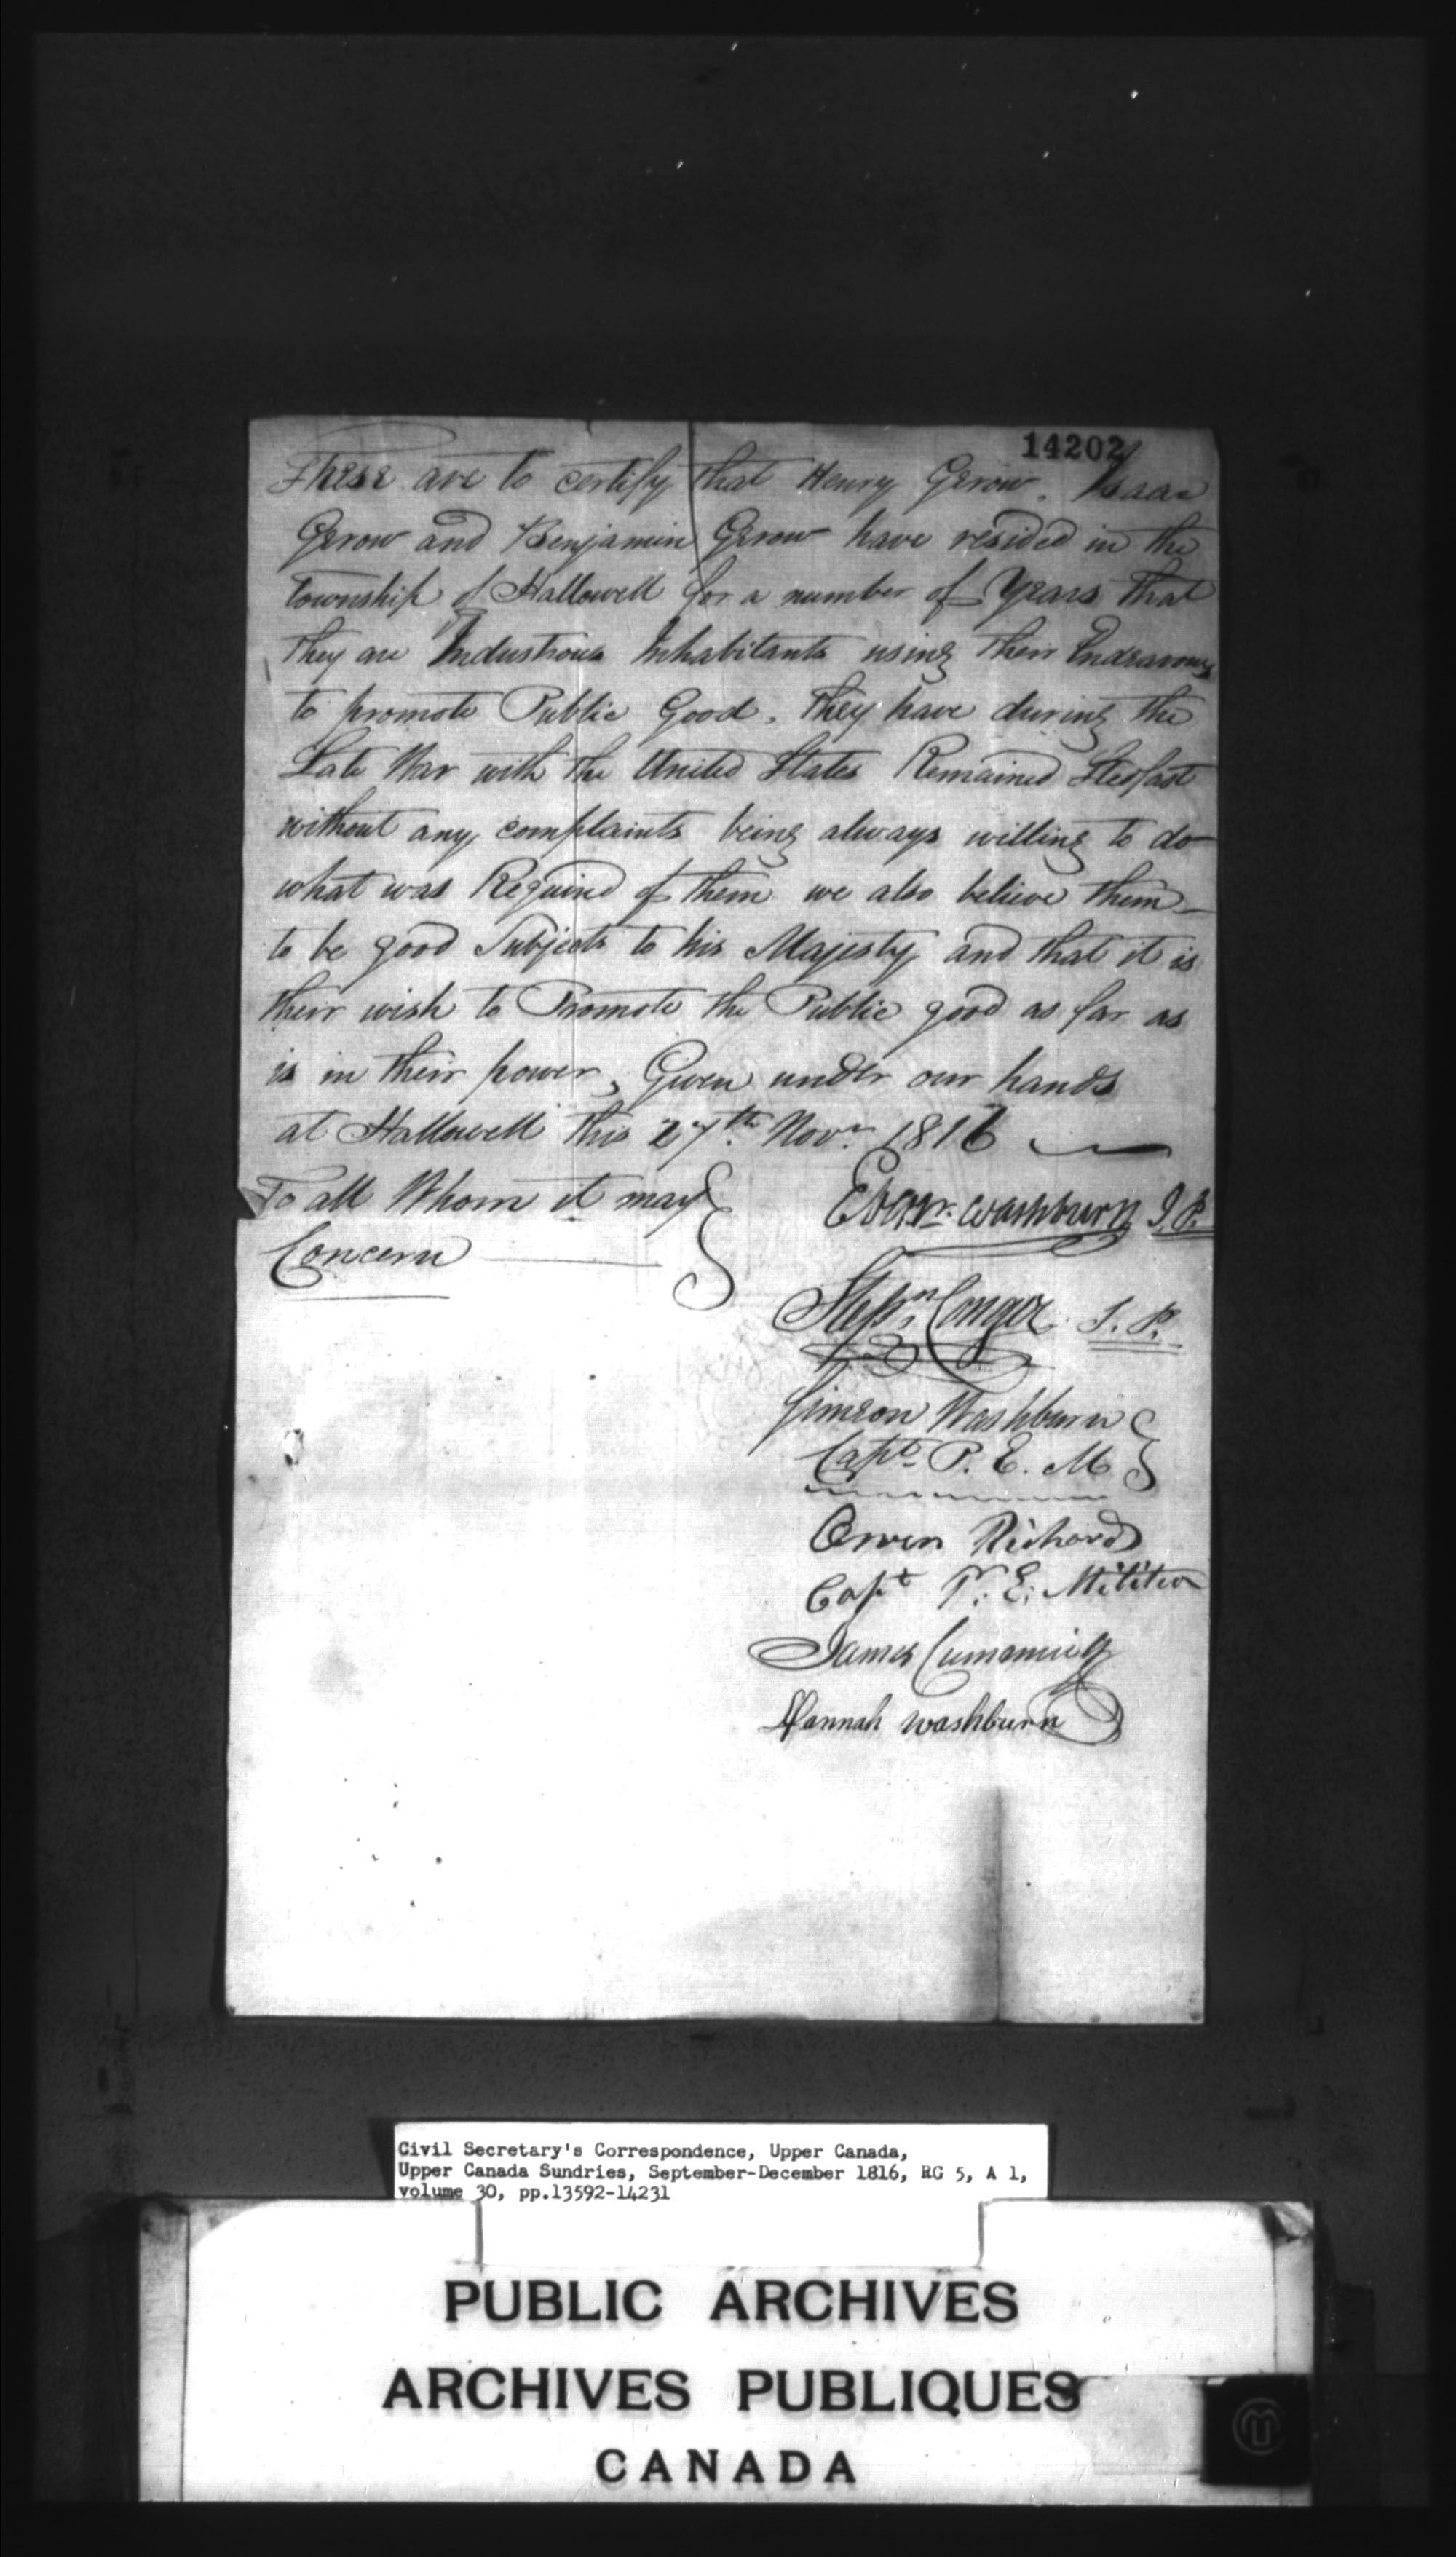 14202
These are to certify that Henry Gerow, Isaac
Gerow and Benjamin Gerow have resided in the
township of Hallowell for a number of Years that
they are Industrous Inhabitants using their Endeavours
to promote Public Good, they have during the
Late War with the United States Remained Stedfast
without any complaints being always willing to do
what was Required of them we also believe them
to be good Subjects to his Majesty and that it is
their wish to Promote the Public good as far as
is in their power, Given under our hands
at Hallowell this 27th Novr 1816
To all Whom it may
Concern
Ebenr. Washburn J.P.
Stepn. Conger J.P.
Simeon Washburn
Capt. P. E. M
Owen Richards
Capt P. E. Militia
James Cumming
Hannah Washburn
Civil Secretary's Correspondence, Upper Canada,
Upper Canada Sundries, September-December 1816, RG 5, A 1,
volume 30, pp.13592-14231
PUBLIC ARCHIVES
ARCHIVES PUBLIQUES
CANADA